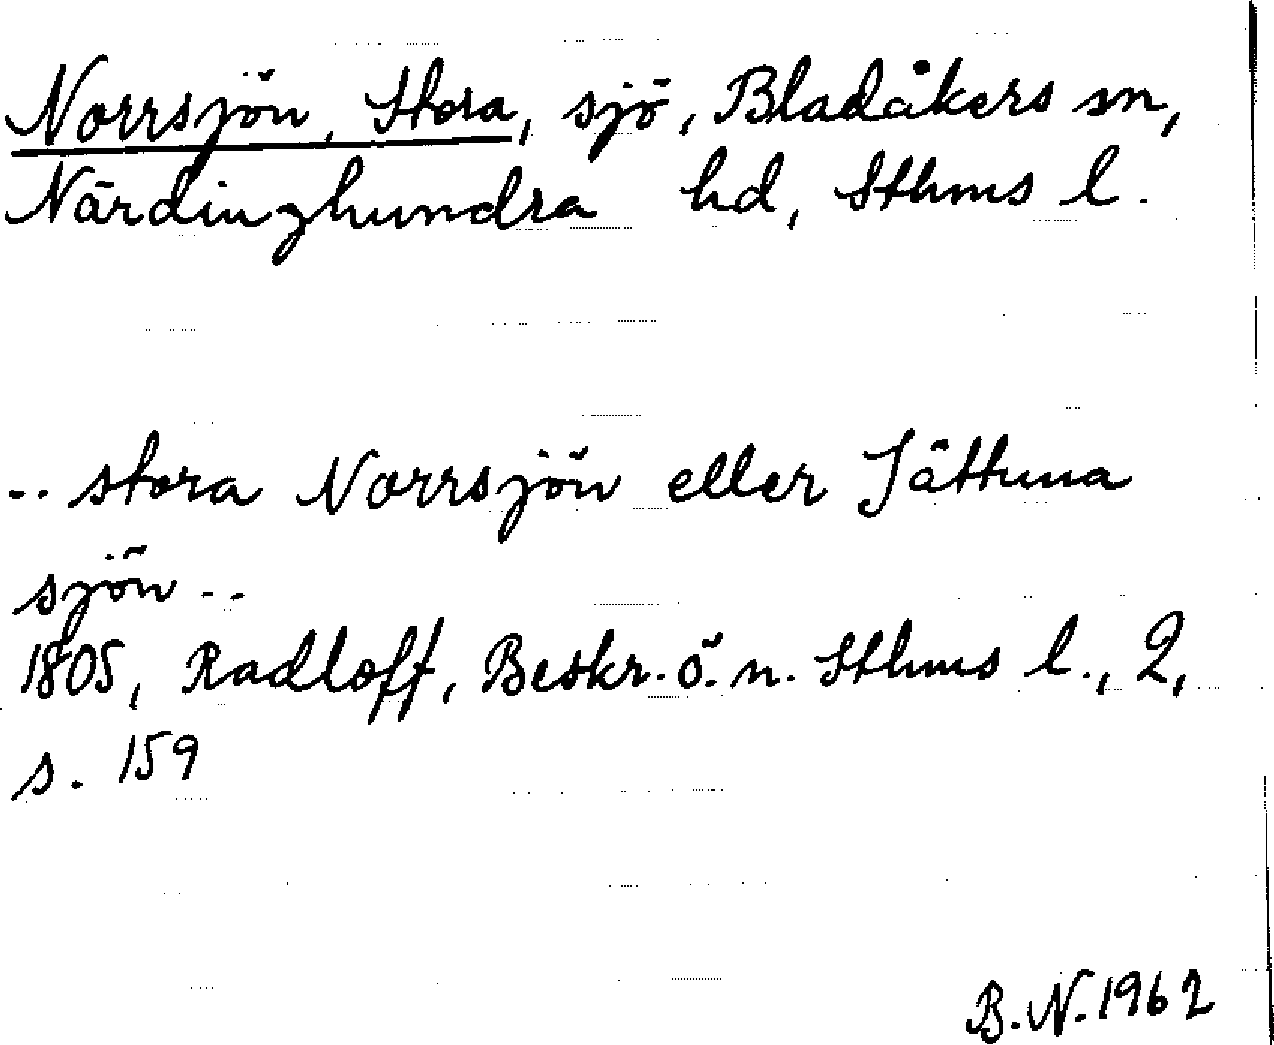 Norrsjön, Stora, sjö, Bladåkers sn,
Närdinghundra hd, Sthms l.
.. stora Norrsjön eller Jättuna
sjön ..
1805, Radloff, Beskr. ö. n. Sthms l., 2,
s. 159
B.N. 1962